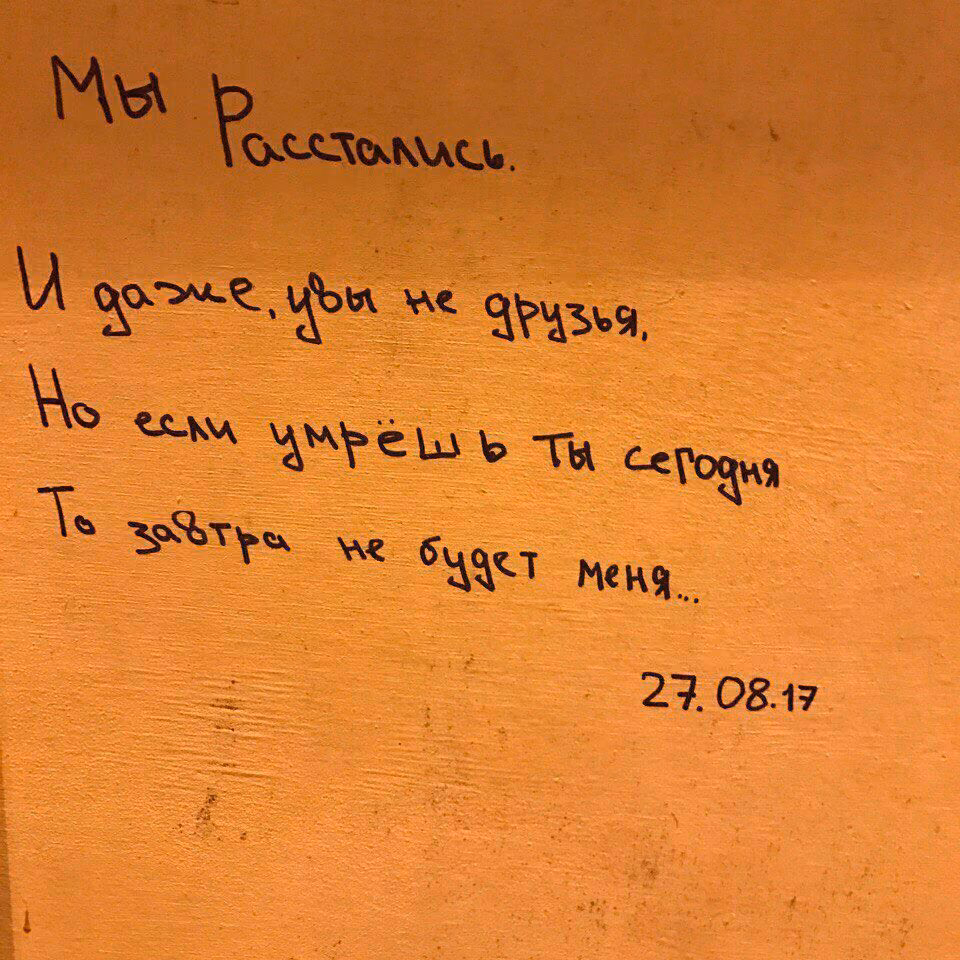 Мы Расстались.
И даже, увы не друзья,
Но если умрёшь ты сегодня
То завтра не будет меня...
27.08.17